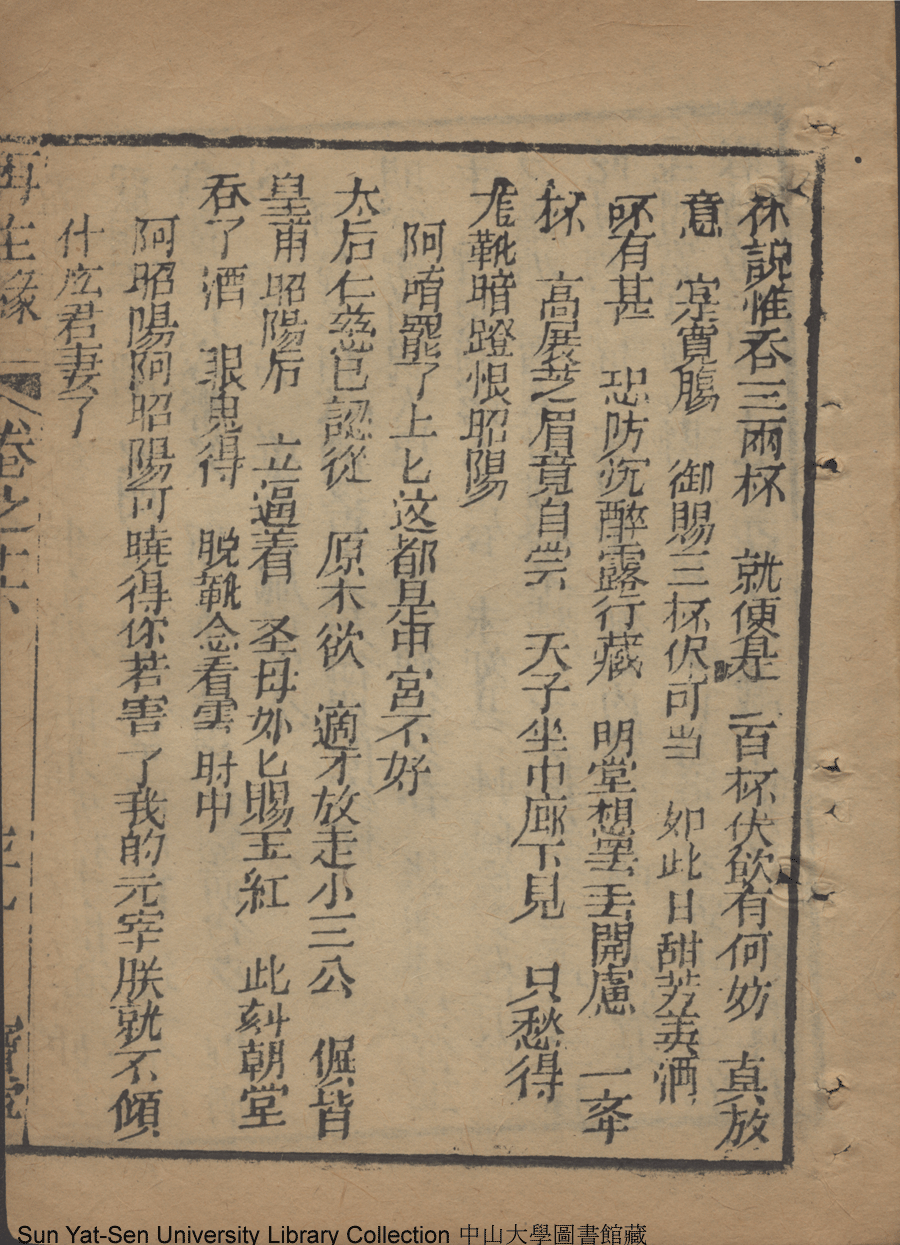 休説惟吞三兩杯 就便是 一百杯伏飲有何妨 真放
意 寔寛膓 御賜三杯伬可当 如此日甜芳美酒
㫟有甚 恐防沉醉露行藏 明堂想罢丢開慮 一㚏
杯 高展芝眉竟自尝 天子坐巾廊下見 只愁得
龙靴暗蹬恨昭陽
阿唷罷了上匕这都是申宮不好
太后仁慈已認從 原不欲 適才放走小三公 俱皆
皇甫昭陽后 立逼着 圣母外匕賜玉紅 此刻朝堂
吞了酒 眼見得 脱靴念看雲时中
阿昭陽阿昭陽可曉得你若害了我的元宰朕就不傾
什庅君妻了
再生緣 卷之十六
Sun Yat-Sen University Library Collection 中山大學圖書館藏